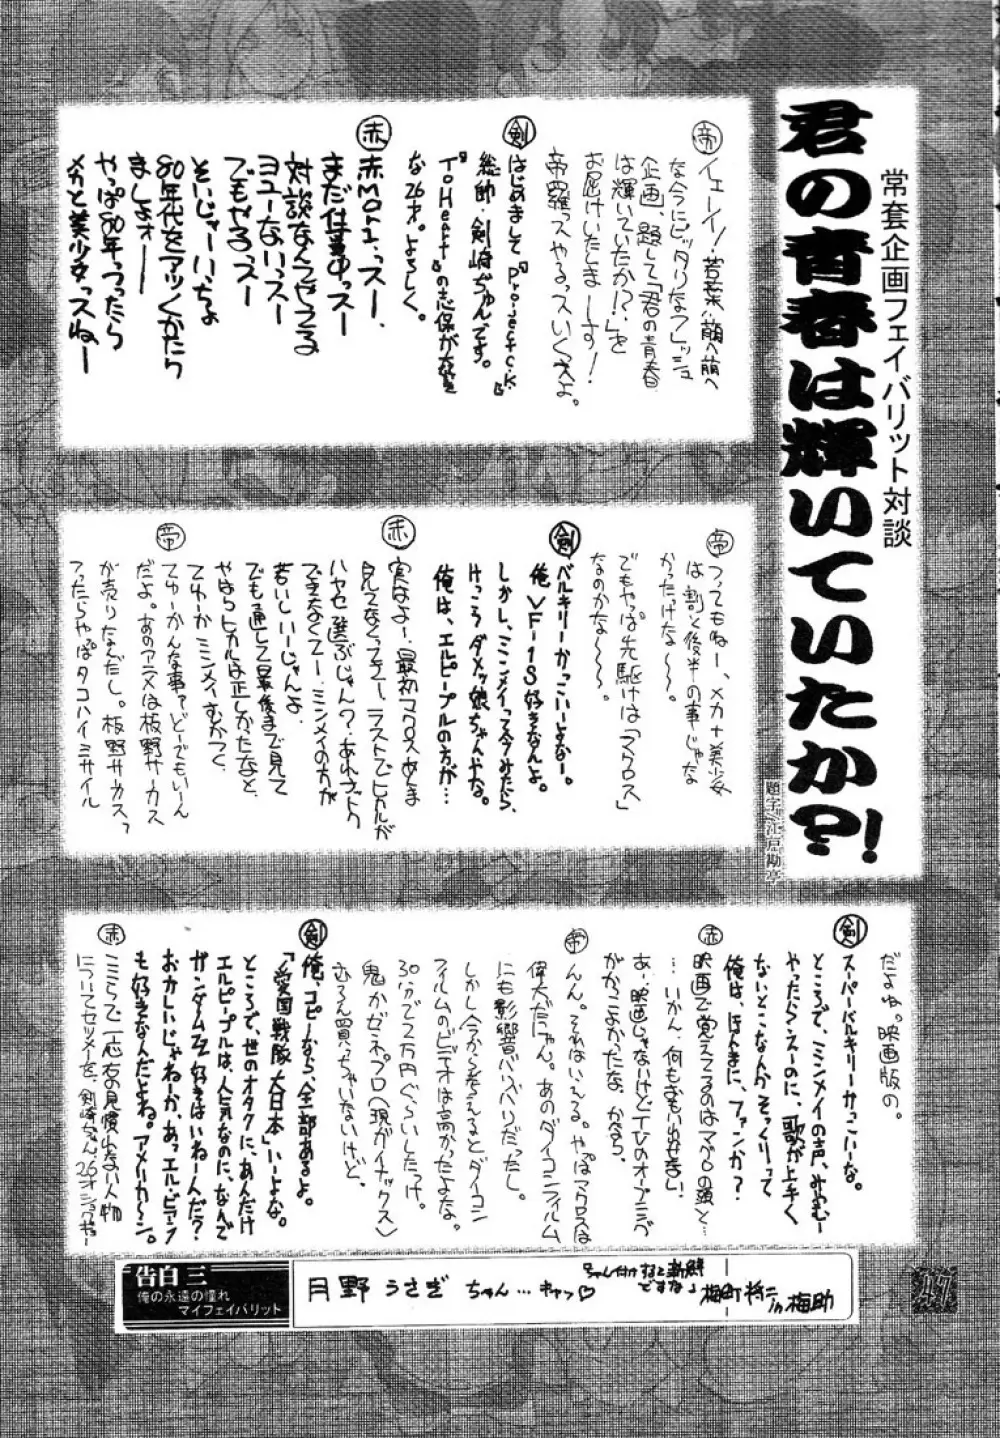 常套企画フェイバリット対談
君の青春は輝いていたか?!
題字/江戸勘亭
帝
イェーイ!若菜萌へ萌へ
な今にピッタリなフレッシュ
企画、題して「君の青春
は輝いていたか!?」を
お届けいたしまーす!
帝羅っスやるっスいくっスよ。
剣
はじめまして『Project.C.K.』
総帥・剣崎ぢゅんです。
『ToHeart』の志保が大好き
な26才。よろしく。
赤
赤Moriっスー
まだ仕事中っスー
対談なんてやってる
ヨユーないっスー
でもやるっスー
そいじゃーいっちょ
80年代をアツくかたり
ましょォー
やっぱ80年つったら
メカと美少女っスねー
帝
つってもねー、メカ+美少女
は割と後半の事じゃな
かったっけな〜〜。
でもやっぱ先駆けは「マクロス」
なのかな〜〜。
剣
バルキリーかっこいーよなー。
俺VF-1S好きなんよ。
しかし、ミンメイって今みたら、
けっこうダメッ娘ちゃんやな。
俺は、エルピープルの方が…
赤
実はよー、最初マクロスあんま
見てなくってェー、ラストでヒカルが
ハヤセ選ぶじゃん?あれナットク
できなくてー、ミンメイの方が
若いしいーじゃんよ。
でも通して最後まで見て
やはらヒカルは正しかったなと。
てゆーかミンメイむかつく。
帝
てゆーかんな事ァどーでもいーん
だよ。あのアニメは板野サーカス
が売りなんだし。板野サーカス、
つったらやっぱタコハイミサイル
だよね。映画版の。
剣
スーパーバルキリーかっこいーな。
ところで、ミンメイの声、みゃむー
やったらンスーのに、歌が上手く
ないとこなんかそっくりって
俺は、ほんきに、ファンか?
赤
映画で覚えてるのはマグロの頭と
…いかん、何もおもい出せない
あ、映画じゃないけどTVのオープニング
がかっこよかったな。かなら。
帝
んん。それはいえる。やっぱマクロスは
偉大だにゃん。あのダイコンフィルム
にも影響バリバリだったし。
しかし今から考えるとダイコン
フィルムのビデオは高かったよな。
30分で2万円ぐらいしたっけ。
鬼かゼネプロ〈現ガイナックス〉
むろん買っちゃいないけど。
剣
俺、コピーなら、全部あるよ。
「愛国戦隊大日本」いーよな。
ところで、世のオタクに、あんだけ
エルピープルは、人気なのに、なんで
ガンダムZZ好きはいねーんだ?
おかしいじゃねーか、あっエル・ビアンノ
も好きなんだよね。アメリカーン。
赤
ここらで一応お見慣れない人物
についてセツメーを、剣崎ちゃん26才
告白三
俺の永遠の憧れ
マイフェイバリット
月野うさぎちゃん…キャッ♡
ちゃん付けすると新鮮
ですな♪
梅町裕二
in梅助
47